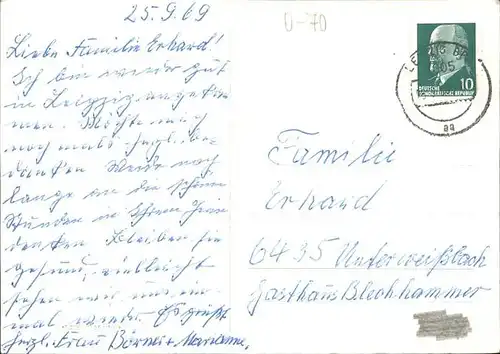 25.9.69
Liebe Familie Erhard!
Ich bin wieder gut
in Leipzig angekom
men. Möchte mich
noch mals herzl. be-
danken. Werde noch
lange an die schönen
Stunden in Ihrem Heim
denken. Bleiben Sie
gesund, vielleicht
sehen wir uns ein-
mal wieder. Es grüßt
herzl. Frau Börner + Marianne.
0-70
LEIPZIG BPA
705
aa
10
DEUTSCHE
DEMOKRATISCHE REPUBLIK
Familie
Erhard
6435 Unterweißbach
Gasthaus Blechhammer